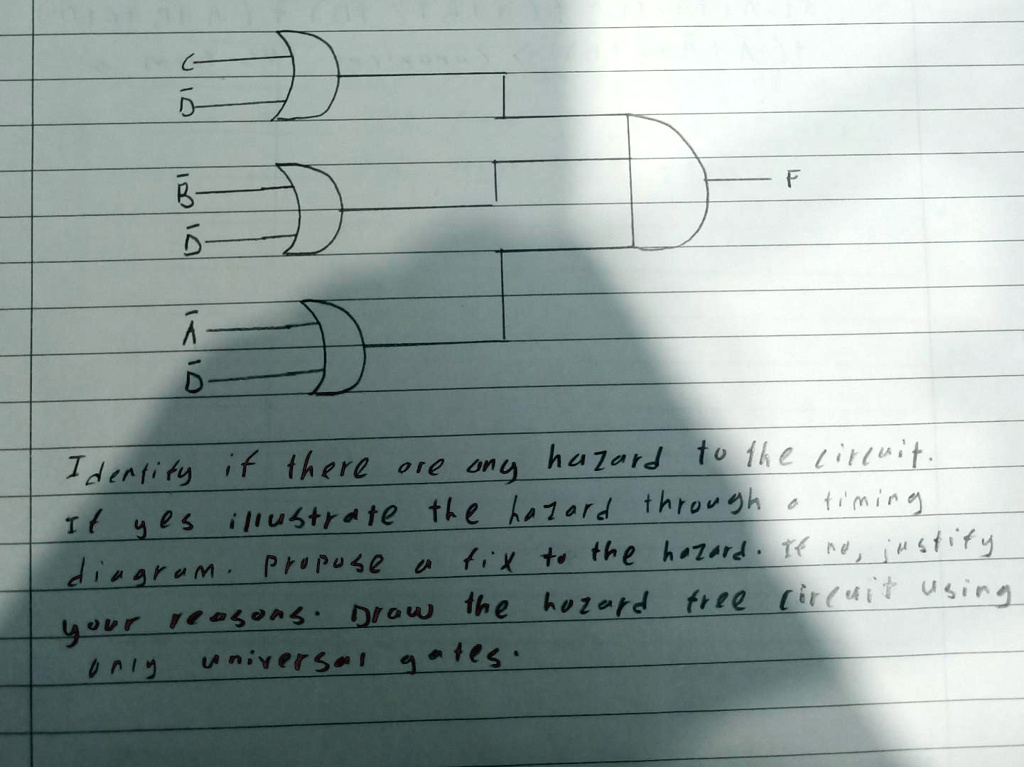 C
D̄
B̄
F
D̄
Ā
D̄
Identify if there are any hazard to the circuit.
If yes illustrate the hazard through a timing
diagram. Propose a fix to the hazard. If no, justify
your reasons. Draw the hazard free circuit using
only universal gates.